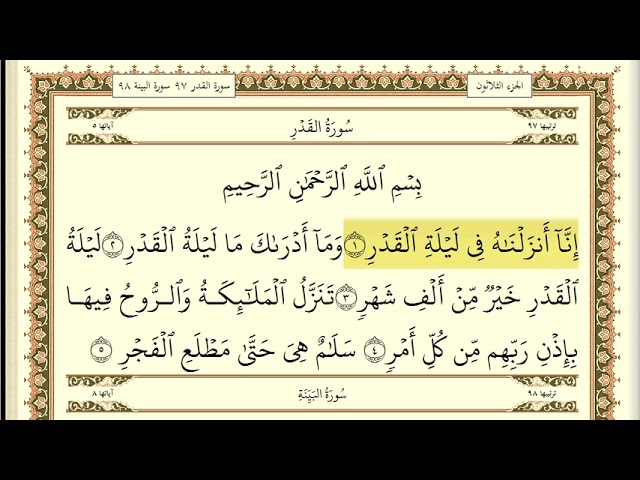 الجزء الثلاثون
سورة القدر ٩٧ سورة البينة ٩٨
ترتيبها ٩٧
سُورَةُ القَدْرِ
آياتها ٥
بِسْمِ ٱللَّهِ ٱلرَّحْمَٰنِ ٱلرَّحِيمِ
إِنَّآ أَنزَلْنَٰهُ فِى لَيْلَةِ ٱلْقَدْرِ ١ وَمَآ أَدْرَىٰكَ مَا لَيْلَةُ ٱلْقَدْرِ ٢ لَيْلَةُ
ٱلْقَدْرِ خَيْرٌ مِّنْ أَلْفِ شَهْرٍ ٣ تَنَزَّلُ ٱلْمَلَٰٓئِكَةُ وَٱلرُّوحُ فِيهَا
بِإِذْنِ رَبِّهِم مِّن كُلِّ أَمْرٍ ٤ سَلَٰمٌ هِىَ حَتَّىٰ مَطْلَعِ ٱلْفَجْرِ ٥
ترتيبها ٩٨
سُورَةُ البَيِّنَةِ
آياتها ٨